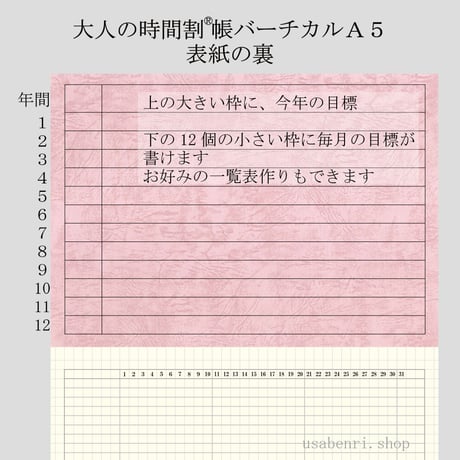 大人の時間割®帳バーチカルＡ５
表紙の裏
年間
上の大きい枠に、今年の目標
1
2
下の12個の小さい枠に毎月の目標が
書けます
3
4
お好みの一覧表作りもできます
5
6
7
8
9
10
11
12
1 2 3 4 5 6 7 8 9 10 11 12 13 14 15 16 17 18 19 20 21 22 23 24 25 26 27 28 29 30 31
usabenri.shop